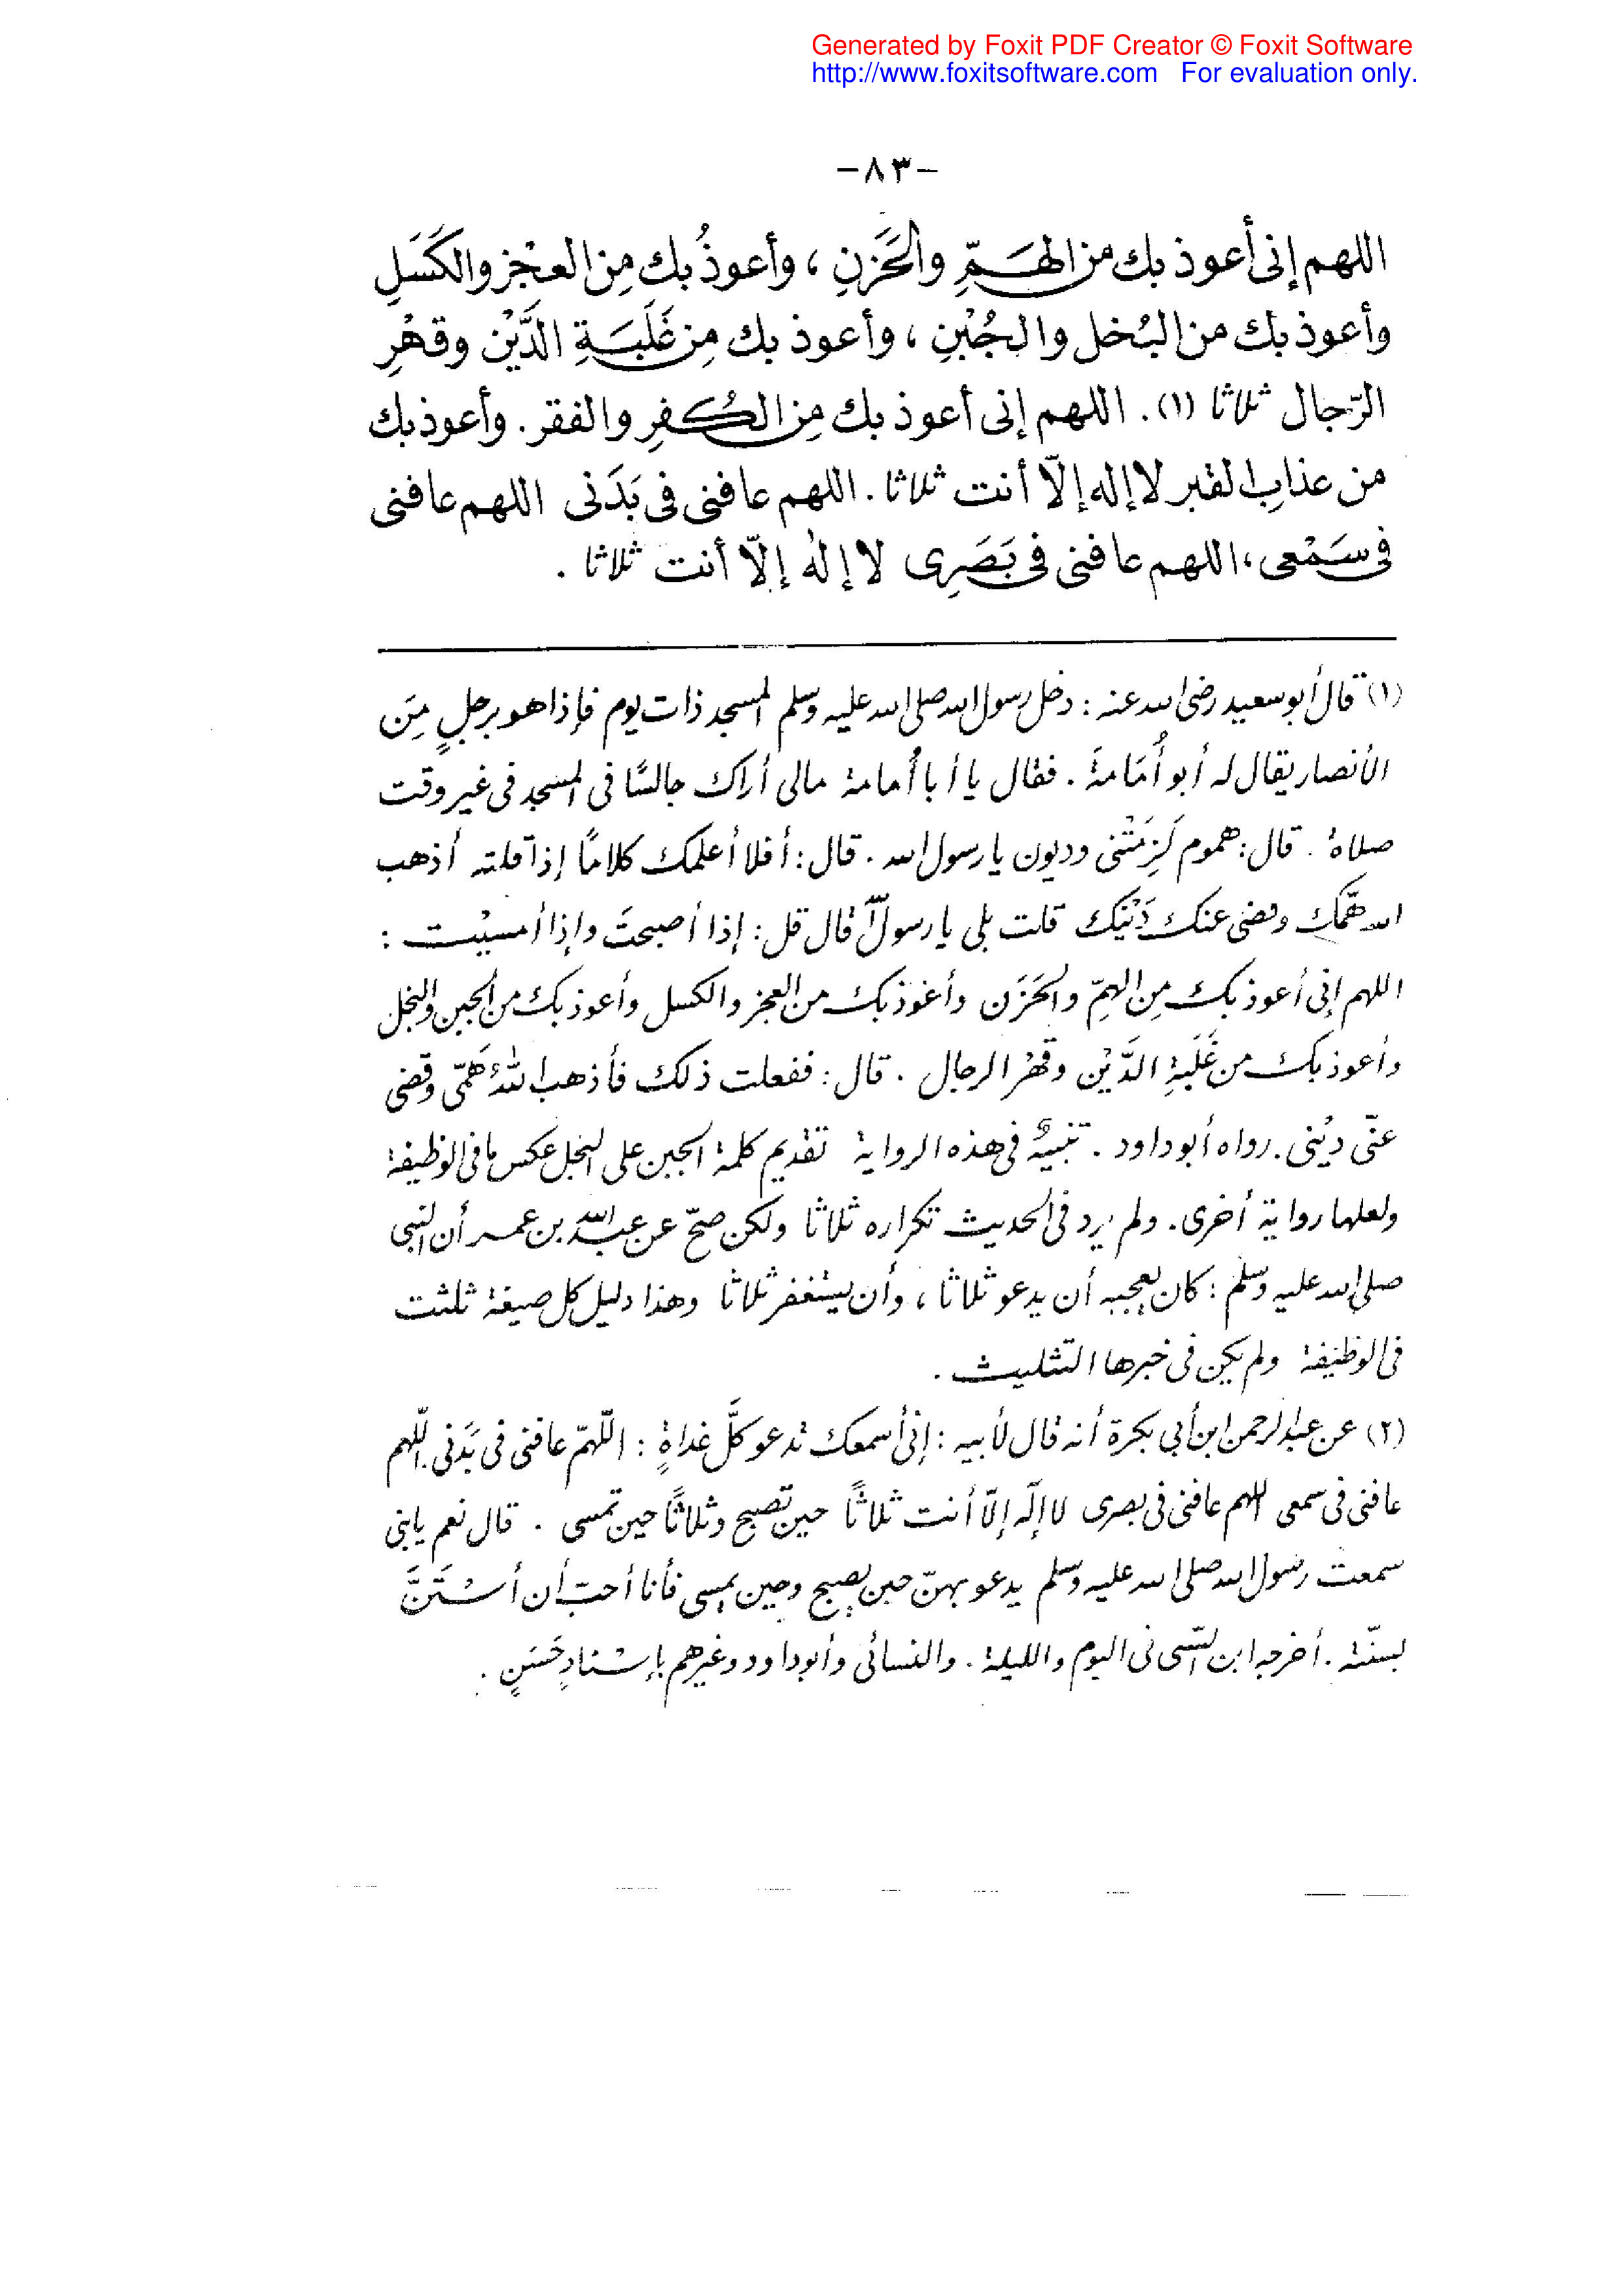 Generated by Foxit PDF Creator © Foxit Software
http://www.foxitsoftware.com For evaluation only.
-٨٣-
اللهم إنى أعوذ بك من الهَمِّ والحَزَنِ ، وأعوذُ بك مِن العجْز والكَسَلِ
وأعوذ بك من البُخل والجُبْنِ ، وأعوذ بك مِن غَلَبَةِ الدَّيْن وقهْرِ
الرّجال ثلاثا (١). اللهم إنى أعوذ بك مِن الكُفرِ والفقر. وأعوذ بك
من عذابِ القبر لا إله إلّا أنت ثلاثا. اللهم عافنى فى بَدَنى اللهم عافنى
فى سَمْعى، اللهم عافنى فى بَصَرِى لا إله إلّا أنت ثلاثا .
(١) قال أبو سعيد رضى الله عنه : دخل رسول الله صلى الله عليه وسلم المسجد ذات يوم فإذا هو برجلٍ مِنَ
الأنصار يقال له أبو أُمَامةَ . فقال يا أبا أُمامة مالى أراك جالسًا فى المسجد فى غير وقت
صلاة . قال: هموم لَزِمَتْنى وديون يا رسول الله . قال: أفلا أعلمك كلامًا إذا قلته أذهب
الله همَّك وقضى عنك دَيْنك قلت بلى يا رسول الله قال قل: إذا أصبحتَ وإذا أمسيْت :
اللهم إنى أعوذ بك مِن الهمِّ والحَزَن وأعوذ بك من العجز والكسل وأعوذ بك من الجبن والبخل
وأعوذ بك من غَلَبةِ الدَّيْن وقهْر الرجال . قال: ففعلت ذلك فأذهب اللهُ هَمّى وقضى
عنّى ديْنى. رواه أبو داود . تنبيهٌ فى هذه الرواية تقديم كلمة الجبن على البخل عكس ما فى الوظيفة
ولعلها رواية أخرى. ولم يرد فى الحديث تكراره ثلاثا ولكن صحّ عن عبد الله بن عمر أن النبى
صلى الله عليه وسلم : كان يعجبه أن يدعو ثلاثا ، وأن يستغفر ثلاثا وهذا دليل كل صيغة ثلثت
فى الوظيفة ولم يكن فى خبرها التثليث .
(٢) عن عبد الرحمن ابن أبي بكرة أنه قال لأبيه : إنى أسمعك تدعو كلَّ غداةٍ : اللّهمّ عافنى فى بَدَنى. اللّهم
عافنى فى سمعى اللهم عافنى فى بصرى لا إله إلّا أنت ثلاثًا حين تصبح وثلاثًا حين تمسى . قال نعم يا بنى
سمعت رسول الله صلى الله عليه وسلم يدعو بهنّ حين يصبح وحين يمسى فأنا أحبّ أن أسْتَنَّ
بسنّته . أخرجه ابن السّنى فى اليوم والليلة . والنسائى وأبوداود وغيرهم بإسْنادٍ حَسَنٍ .